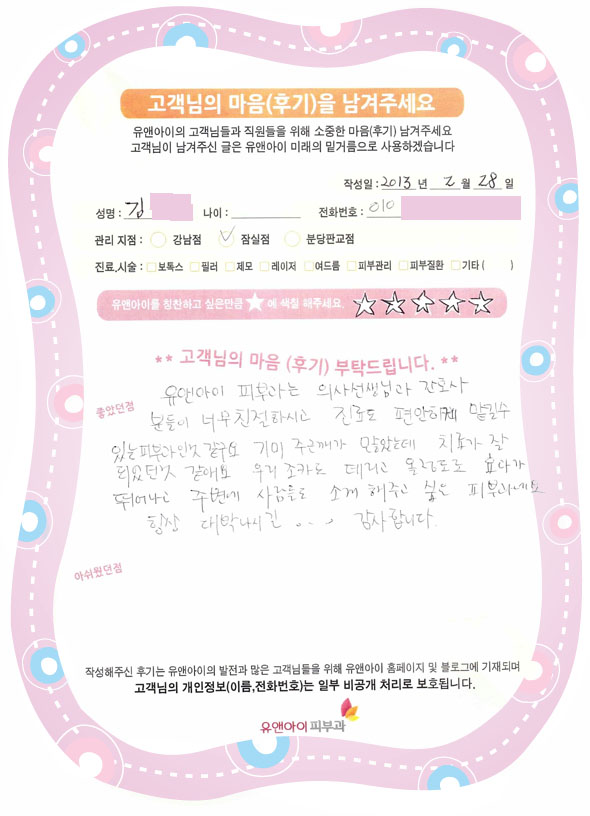 고객님의 마음(후기)을 남겨주세요
유앤아이의 고객님들과 직원들을 위해 소중한 마음(후기) 남겨주세요
고객님이 남겨주신 글은 유앤아이 미래의 밑거름으로 사용하겠습니다
작성일 : 2013 년 2 월 28 일
성명 : 김 나이 : 전화번호 : 010
관리 지점 : 강남점 잠실점 분당판교점
진료,시술 : 보톡스 필러 제모 레이저 여드름 피부관리 피부질환 기타 ( )
유앤아이를 칭찬하고 싶은만큼 ★ 에 색칠 해주세요.
** 고객님의 마음 (후기) 부탁드립니다. **
좋았던점
유앤아이 피부과는 의사선생님과 간호사
분들이 너무친절하시고 진료도 편안하게 맡길수
있는피부과인것 같구요 기미 주근깨가 많았는데 치료가 잘
되었던것 같애요 우리 조카도 데리고 올정도로 효과가
뛰어나고 주변에 사람들도 소개 해주고 싶은 피부과네요
항상 대박나시길 .... 감사합니다.
아쉬웠던점
작성해주신 후기는 유앤아이의 발전과 많은 고객님들을 위해 유앤아이 홈페이지 및 블로그에 기재되며
고객님의 개인정보(이름,전화번호)는 일부 비공개 처리로 보호됩니다.
유앤아이피부과